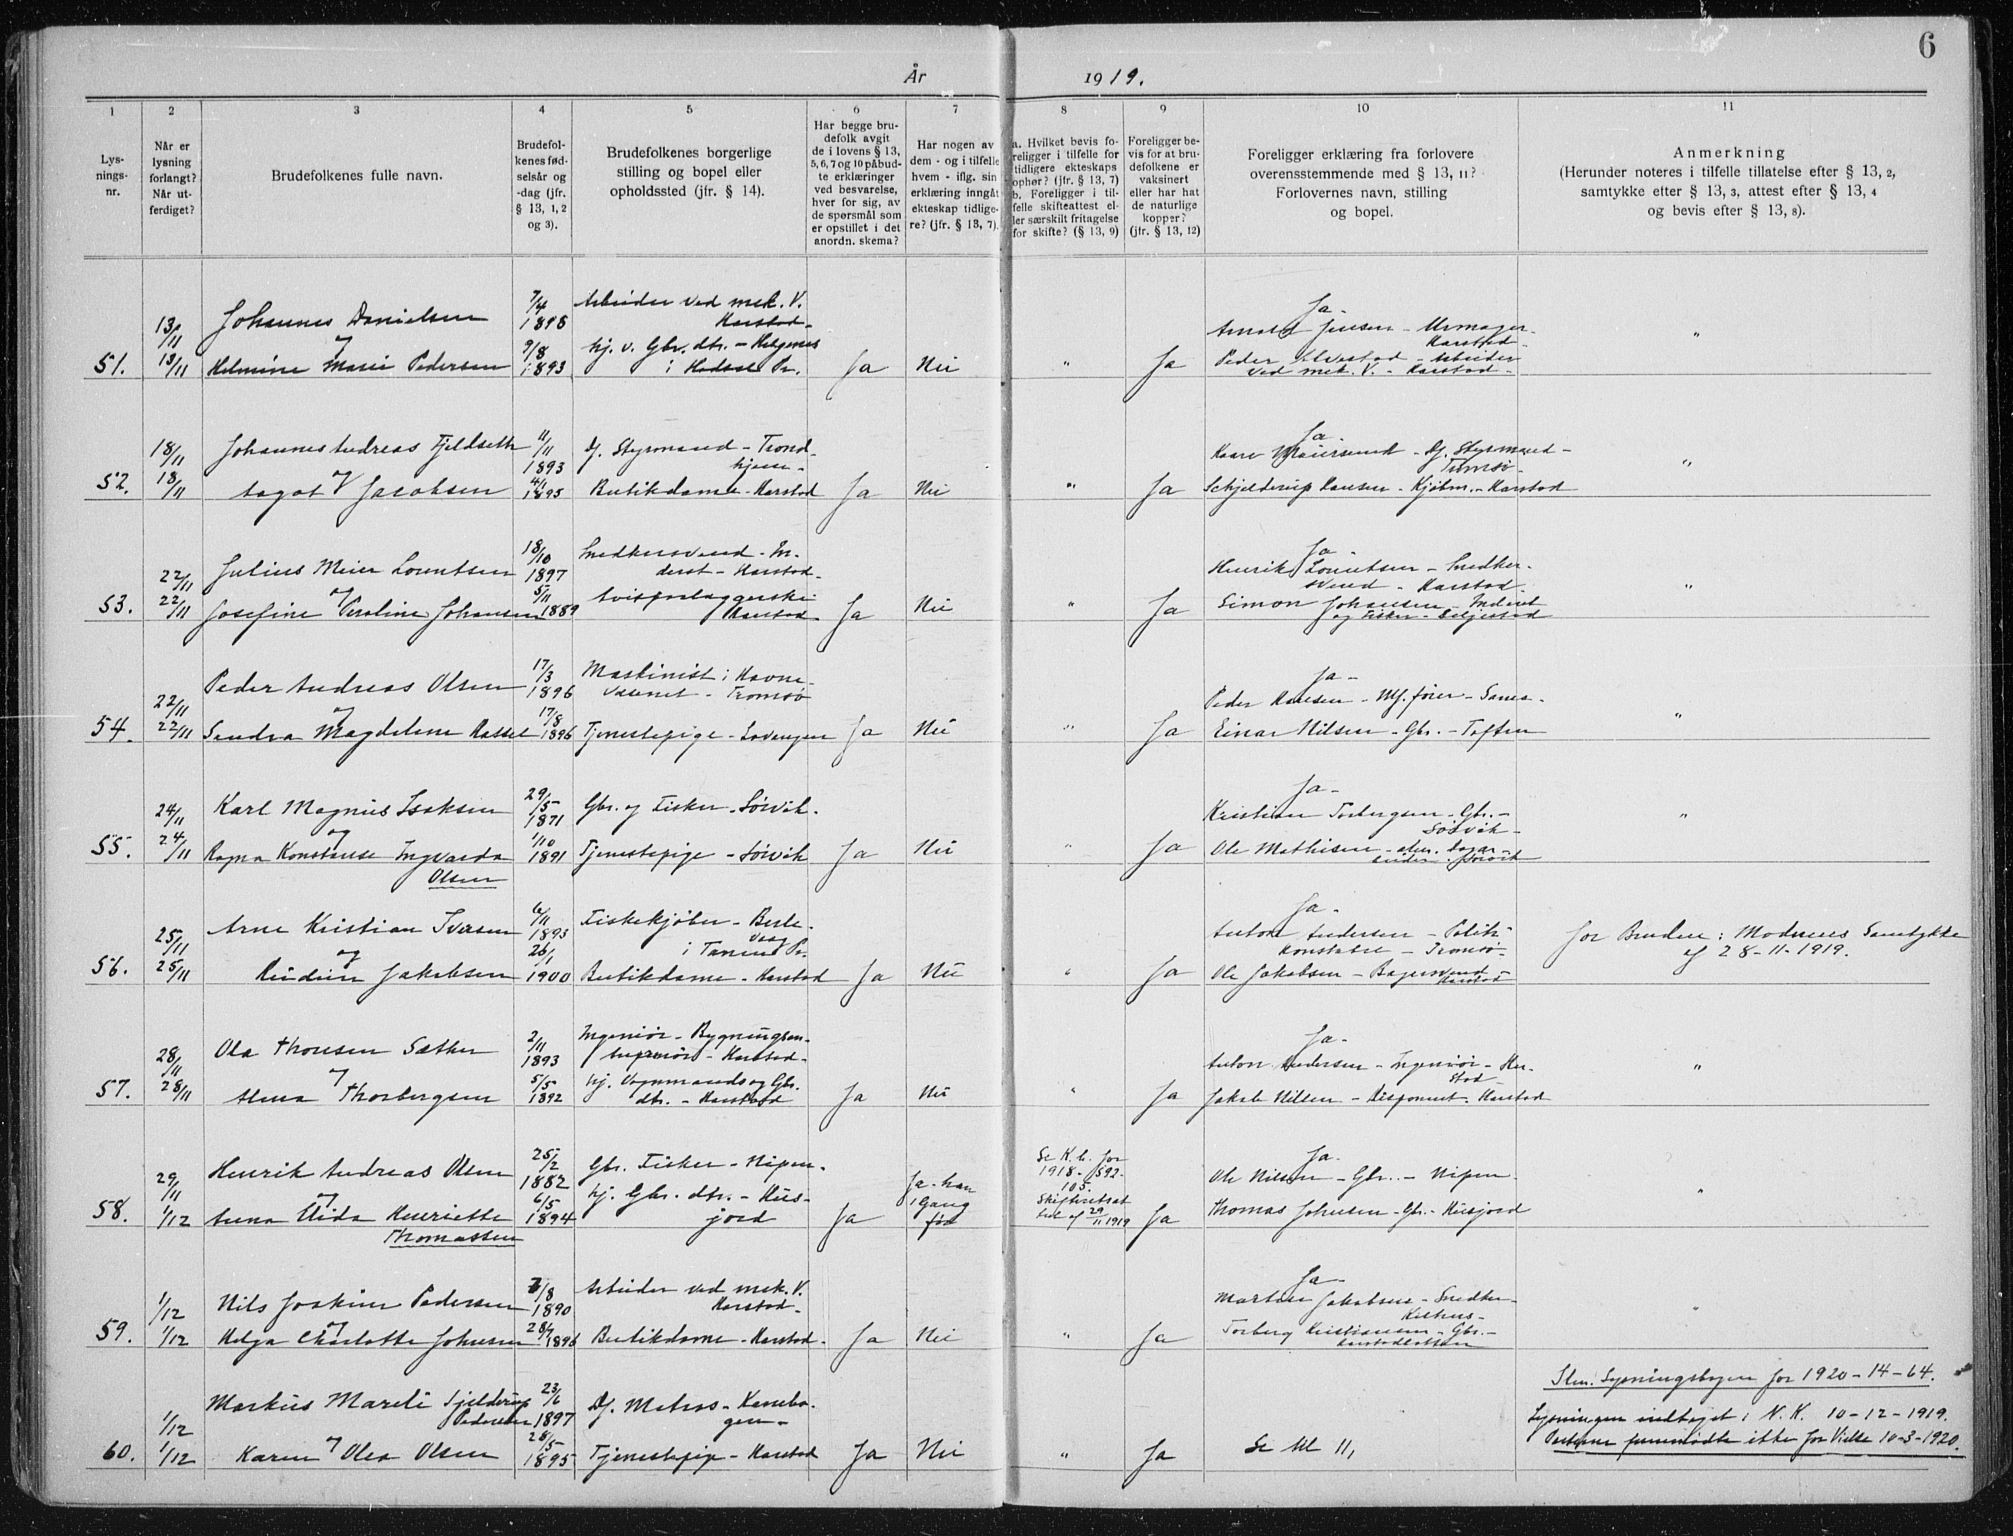 6
År 1919.
1 2 3 4 5 6 7 8 9 10 11
Lysningsnr.
Når er lysning forlangt? Når utferdiget?
Brudefolkenes fulle navn.
Brudefolkenes fødselsår og -dag (jfr. § 13, 1, 2 og 3).
Brudefolkenes borgerlige stilling og bopel eller opholdssted (jfr. § 14).
Har begge brudefolk avgit de i lovens § 13, 5, 6, 7 og 10 påbudte erklæringer ved besvarelse, hver for sig, av de spørsmål som er opstillet i det anordn. skema?
Har nogen av dem - og i tilfelle hvem - iflg. sin erklæring inngått ekteskap tidligere? (jfr. § 13, 7).
a. Hvilket bevis foreligger i tilfelle for tidligere ekteskaps ophør? (jfr. § 13, 7)
b. Foreligger i tilfelle skifteattest eller særskilt fritagelse for skifte? (§ 13, 9)
Foreligger bevis for at brudefolkene er vaksinert eller har hat de naturlige kopper? (jfr. § 13, 12)
Foreligger erklæring fra forlovere overensstemmende med § 13, 11? Forlovernes navn, stilling og bopel.
Anmerkning
(Herunder noteres i tilfelle tillatelse efter § 13, 2, samtykke efter § 13, 3, attest efter § 13, 4 og bevis efter § 13, 8).
13/11 Johannes Danielsen 7/4 1898 Arbeider ved mek. V. Harstad - Ja - Arnold Jensen - Urmager - Harstad - "
og
51. 13/11 Helmine Marie Pedersen 9/8 1893 hj. v. Gbr. dtr. - Helgenes i Hadsel Pr. Ja Nei " Ja Peder - Arbeider ved mek. V. - Harstad -
18/11 Johannes Andreas Fjeldseth 11/11 1893 Df. Styrmand - Trondhjem - Ja - Kaare - Df. Styrmand - Tromsø - "
og
52. 18/11 Aagot Jacobsen 4/1 1895 Butikdame - Harstad Ja Nei " Ja Schjelderup Hansen - Kjøbm. - Harstad
22/11 Julius Meier Lorentsen 18/10 1897 Snedkersvend - Inderst - Harstad - Ja Henrik Lorentsen - Snedkersvend - Harstad - "
og
53. 22/11 Josefine Peroline Johansen 5/11 1889 Avisombæggerske Harstad - Ja Nei " Ja Simon Johansen - Inderst og Fisker - Seljestad
22/11 Peder Andreas Olsen 17/3 1896 Maskinist i Havnevæsenet - Tromsø Ja - Peder Hansen - Mf. fører - Sama - "
og
54. 22/11 Sandra Magdelene Hassel 17/8 1896 Tjenestepige - Lavangen Ja Nei " Ja Einar Nilsen - Gbr. - Toften
24/11 Karl Magnus Isaksen 29/5 1871 Gbr. og Fisker - Sørvik - Ja - Kristian Torbergsen - Gbr. - Sørvik - "
og
55. 24/11 Ragna Konstanse Ingvarda Olsen 1/10 1891 Tjenestepige - Sørvik Ja Nei " Ja Ole Mathisen - Sørvik
25/11 Arne Kristian Iversen 6/11 1893 Fiskekjøber - Berlevaag i Tanen Pr. Ja - Anton Andersen - Politikonstabel - Tromsø - for Bruden: Moderens Samtykke af 28-11-1919.
og
56. 25/11 Jakobsen 26/1 1900 Butikdame - Harstad Ja Nei " Ja Ole Jakobsen - Bagersvend Harstad
28/11 Ola Thonsen Sæther 2/11 1893 Ingeniør - Bygningsentreprenør - Harstad - Ja - Anton Andersen - Ingeniør - Harstad - "
og
57. 28/11 Anna Thorbergsen 5/5 1892 hj. Vognmands og Gbr. dtr. - Harstad Ja Nei " Ja Jakob Nilsen - Disponent - Harstad
29/11 Henrik Andreas Olsen 25/2 1882 Gbr. Fisker - Nipen - Ja - han 1 Gang før Se K. b. for 1918 - 592 - 105. Skifteretsattest af 29/11 1919 Ja - Ole Nilsen - Gbr. - Nipen - "
og
58. 1/12 Anna Alida Henriette Thomassen 6/5 1894 hj. Gbr. dtr. - Husjord Ja Ja Thomas Johnsen - Gbr. - Husjord
1/12 Nils Joakim Pedersen 7/8 1890 Arbeider ved mek. V. Harstad - Ja - Martin Jakobsen - Snedker - Kilhus - "
og
59. 1/12 Helga Charlotte Johnsen 28/7 1896 Butikdame - Harstad - Ja Nei " Ja Torberg Kristiansen - Gbr. -
1/12 Markus Mareli Sjelderup Pedersen 23/6 1897 Df. Matros - Kanebogen - Sml. Lysningsbogen for 1920 - 14 - 64.
og
60. 1/12 Karen Olea Olsen 28/5 1895 Tjenestepige - Harstad Ja Nei " Ja Se til 11, Lysningen indtaget i N. K. 10-12-1919. Parterne fremmødte ikke for Vielse 10-3-1920.